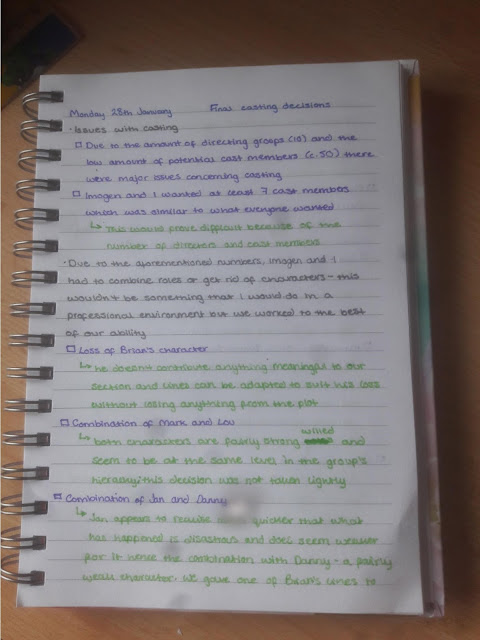 Monday 28th January Final casting decisions
· Issues with casting
Due to the amount of directing groups (10) and the
low amount of potential cast members (c.50) there
were major issues concerning casting
Imogen and I wanted at least 7 cast members
which was similar to what everyone wanted
↳ This would prove difficult because of the
number of directors and cast members
· Due to the aforementioned numbers, Imogen and I
had to combine roles or get rid of characters - this
wouldn't be something that I would do in a
professional environment but we worked to the best
of our ability
Loss of Brian's character
↳ he doesn't contribute anything meaningful to our
section and lines can be adapted to suit his loss
without losing anything from the plot
Combination of Mark and Lou
willed
↳ both characters are fairly strong and
seem to be at the same level in the group's
hierarchy; this decision was not taken lightly
Combination of Jan and Danny
↳ Jan appears to realise quicker that what
has happened is disastrous and does seem weaker
for it hence the combination with Danny - a fairly
weak character. We gave one of Brian's lines to